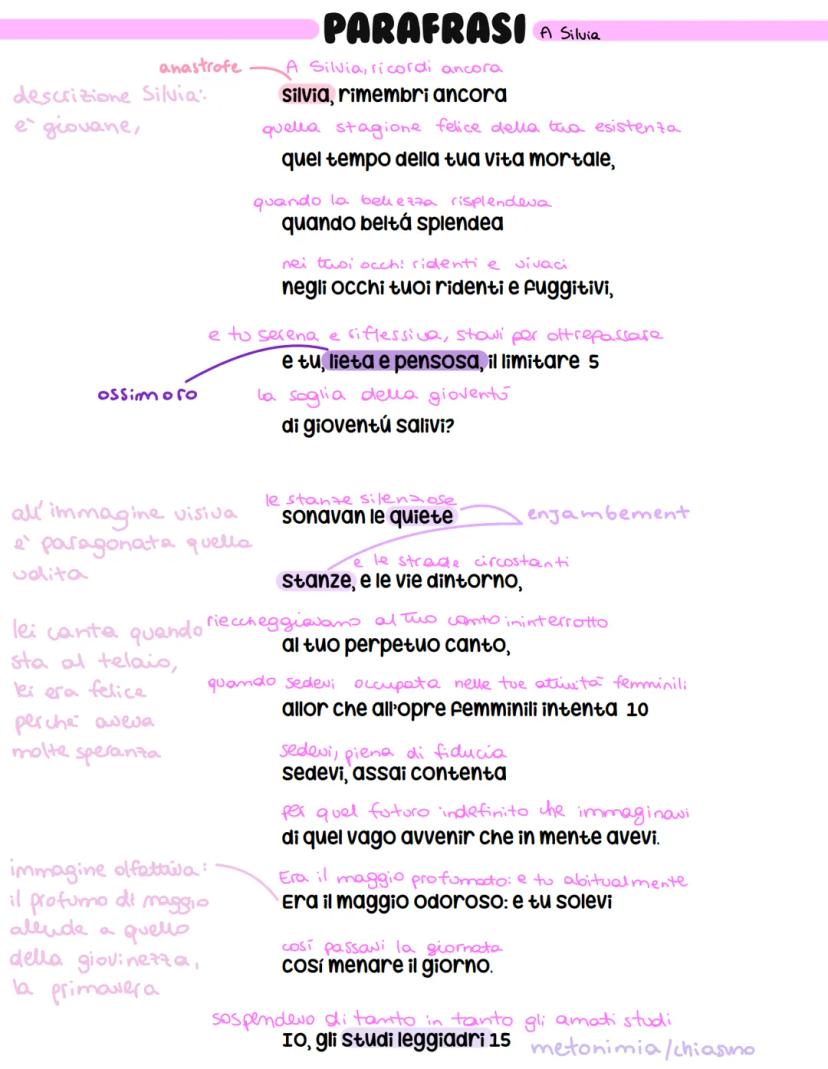 PARAFRASI A Silvia
anastrofe
A Silvia, ricordi ancora
silvia, rimembri ancora
descrizione Silvia:
e' giovane,
quella stagione felice della tua esistenza
quel tempo della tua vita mortale,
quando la bellezza risplendeva
quando beltá splendea
nei tuoi occhi ridenti e vivaci
negli occhi tuoi ridenti e fuggitivi,
e tu serena e riflessiva, stavi per oltrepassare
e tu, lieta e pensosa, il limitare 5
ossimoro
la soglia della gioventú
di gioventú salivi?
le stanze silenziose
sonavan le quiete
enjambement
all'immagine visiva
e' paragonata quella
udita
e le strade circostanti
stanze, e le vie dintorno,
riecheggiavano al tuo canto ininterrotto
al tuo perpetuo canto,
lei canta quando
sta al telaio,
lei era felice
perché aveva
molte speranza
quando sedevi occupata nelle tue attività femminili
allor che all'opre femminili intenta 10
sedevi, piena di fiducia
sedevi, assai contenta
per quel futuro indefinito che immaginavi
di quel vago avvenir che in mente avevi.
immagine olfattiva:
il profumo di maggio
allude a quello
della giovinezza,
la primavera
Era il maggio profumato: e tu abitualmente
Era il maggio odoroso: e tu solevi
cosí passavi la giornata
cosí menare il giorno.
sospendevo di tanto in tanto gli amati studi
IO, gli studi leggiadri 15
metonimia/chiasmo